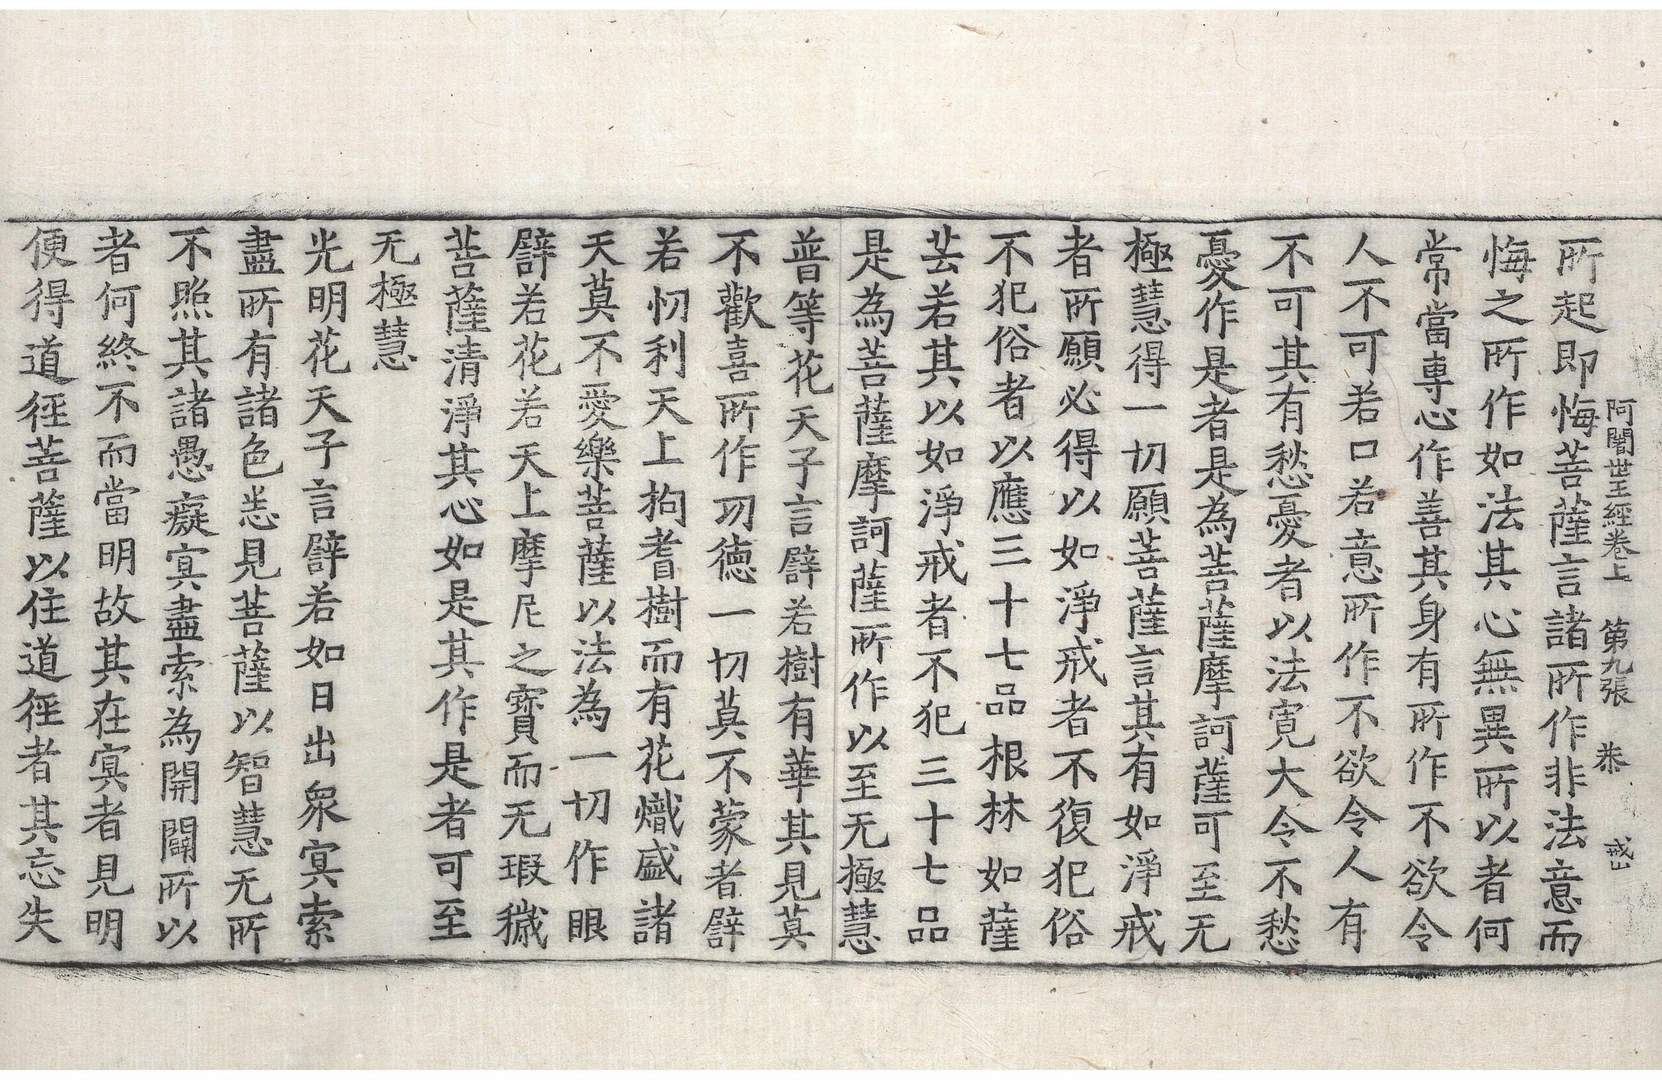 阿闍世王經卷上 第九張 恭
所起即悔菩薩言諸所作非法意而
悔之所作如法其心無異所以者何
常當專心作善其身有所作不欲令
人不可若口若意所作不欲令人有
不可其有愁憂者以法寬大令不愁
憂作是者是為菩薩摩訶薩可至无
極慧得一切願菩薩言其有如淨戒
者所願必得以如淨戒者不復犯俗
不犯俗者以應三十七品根林如薩
芸若其以如淨戒者不犯三十七品
是為菩薩摩訶薩所作以至无極慧
普等花天子言譬若樹有華其見莫
不歡喜所作功德一切莫不蒙者譬
若忉利天上拘耆樹而有花熾盛諸
天莫不愛樂菩薩以法為一切作眼
譬若花若天上摩尼之寶而无瑕穢
菩薩清淨其心如是其作是者可至
无極慧
光明花天子言譬若如日出衆冥索
盡所有諸色悉見菩薩以智慧无所
不照其諸愚癡冥盡索為開闢所以
者何終不而當明故其在冥者見明
便得道徑菩薩以住道徑者其忘失